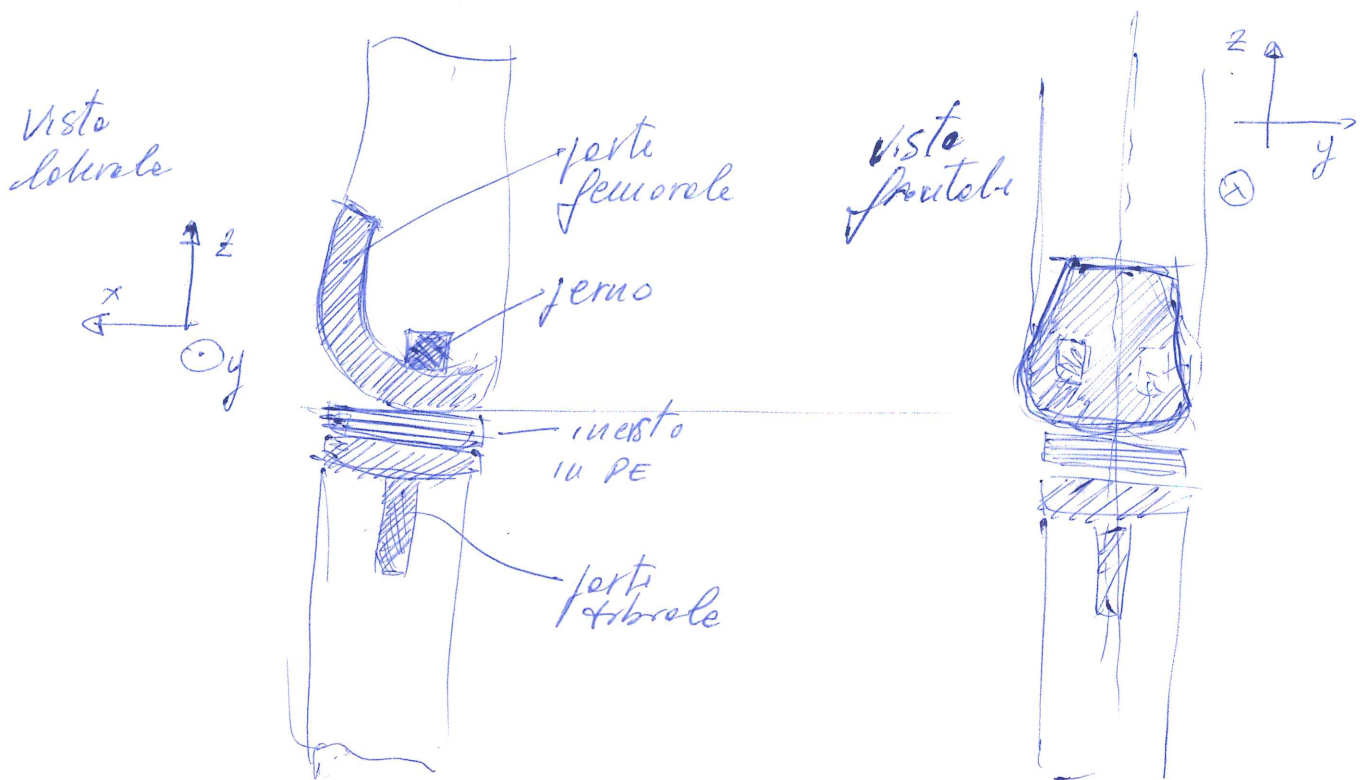 vista
laterale
z
x
y
parte
femorale
perno
inserto
in PE
parte
tibiale
vista
frontale
z
y
x